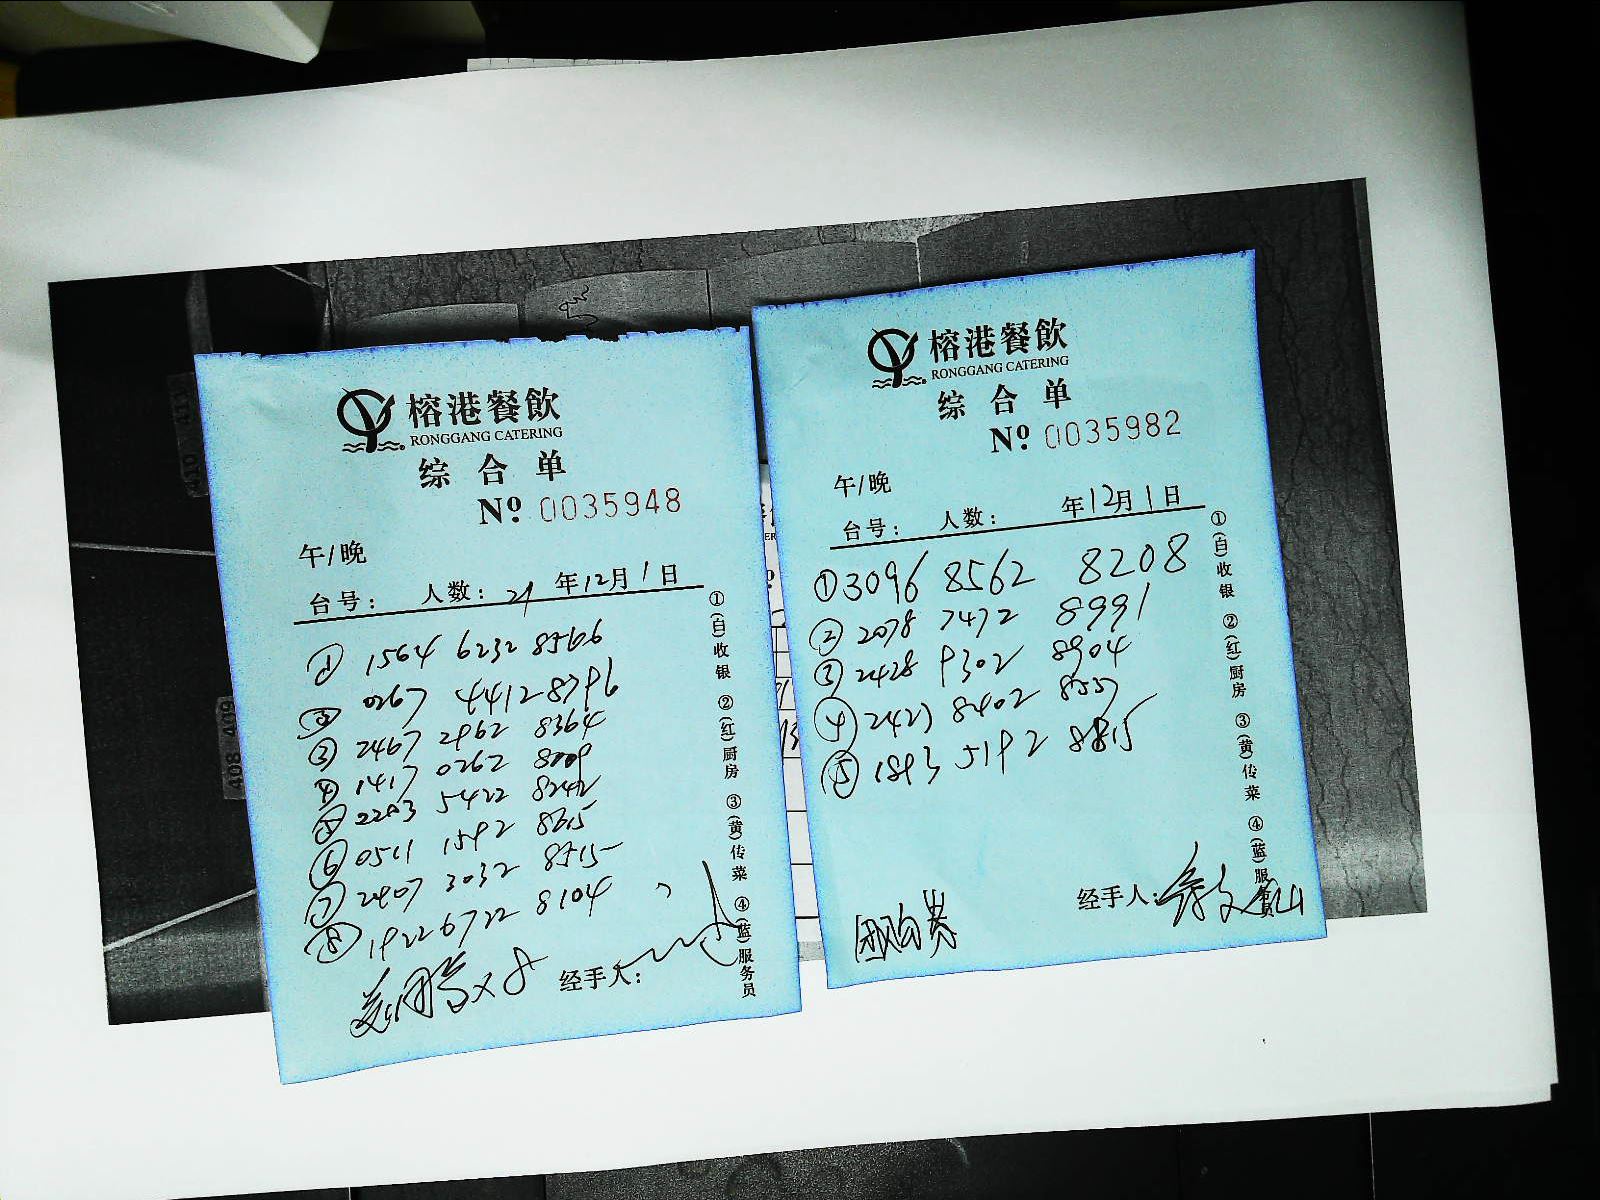 榕港餐飲
RONGGANG CATERING
综合单
Nº 0035948
午/晚
台号： 人数： 21 年12月1日
① 1564 6232 8566
② 0267 4412 8796
③ 2467 2962 8364
④ 1417 0262 8009
⑤ 2293 5422 8242
⑥ 0511 1592 8615
⑦ 2407 3032 8715
⑧ 1922 6722 8104
x 8
经手人：
①(白)收银 ②(红)厨房 ③(黄)传菜 ④(蓝)服务员
榕港餐飲
RONGGANG CATERING
综合单
Nº 0035982
午/晚
台号： 人数： 年12月1日
① 3096 8562 8208
② 2078 7472 8991
③ 2428 9302 8904
④ 2423 8402 8557
⑤ 1893 5192 8815
团购券
经手人：
①(白)收银 ②(红)厨房 ③(黄)传菜 ④(蓝)服务员
410 411
408 409